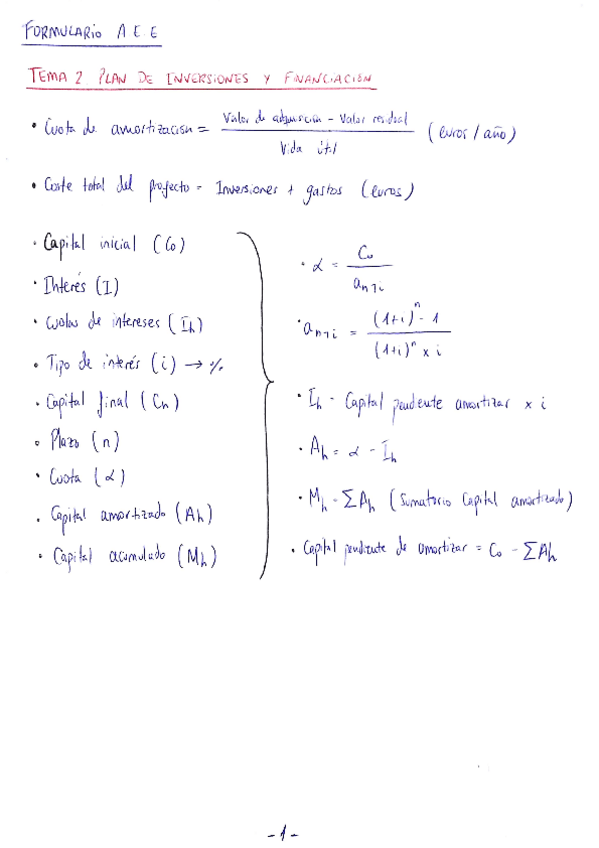 FORMULARIO A.E.E
TEMA 2 PLAN DE INVERSIONES Y FINANCIACIÓN
• Cuota de amortización = Valor de adquisición - Valor residual / Vida útil (euros / año)
• Coste total del proyecto = Inversiones + gastos (euros)
• Capital inicial (C₀)
• Interés (I)
• Cuotas de intereses (Iₕ)
• Tipo de interés (i) → %
• Capital final (Cₙ)
• Plazo (n)
• Cuota (α)
• Capital amortizado (Aₕ)
• Capital acumulado (Mₕ)
• α = C₀ / aₙ¬ᵢ
• aₙ¬ᵢ = (1+i)ⁿ - 1 / (1+i)ⁿ x i
• Iₕ = Capital pendiente amortizar x i
• Aₕ = α - Iₕ
• Mₕ = ΣAₕ (Sumatorio Capital amortizado)
• Capital pendiente de amortizar = C₀ - ΣAₕ
- 1 -